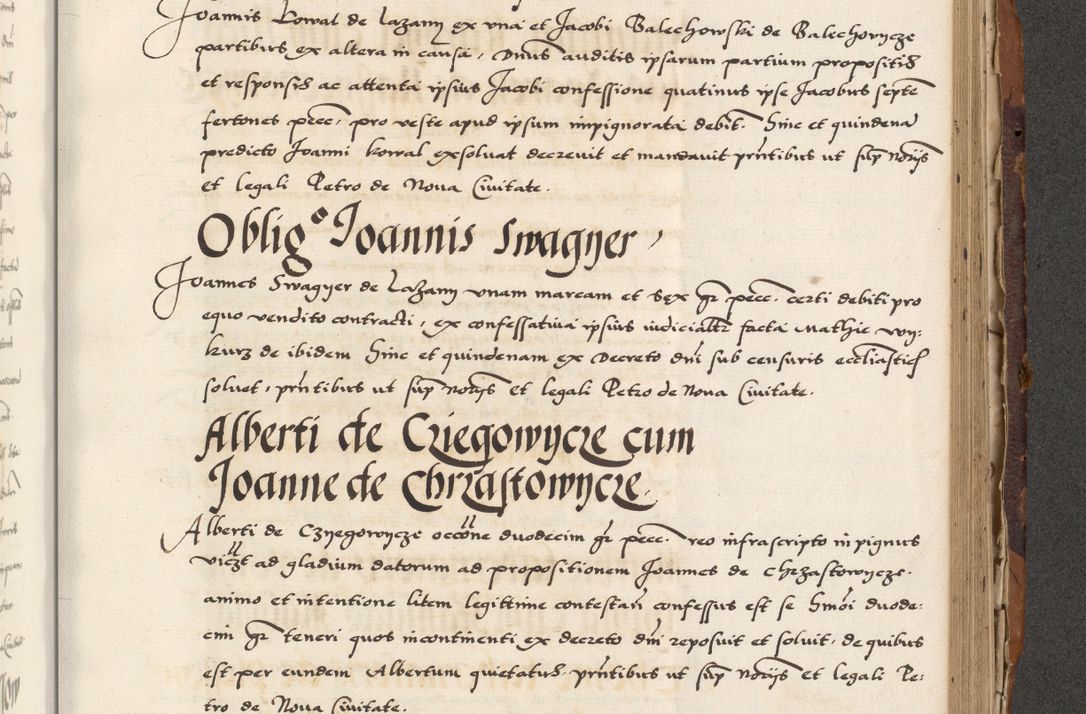 Joannis Kowal de Lazany ex una et Jacobi Balechowski de Balechowycze
partibus ex altera in causa, Dnus auditis ipsarum partium propositis
et responsis ac attenta ipsius Jacobi confessione quatinus ipse Jacobus septe
fertones pecc. pro veste apud ipsum inpignorata debit. Hinc et quindena
predicto Joanni Kowal exsoluat decreuit et mandauit pñtibus ut sup Notiis
et legali Petro de Noua Ciuitate.
Oblig° Joannis Swagyer,
Joannes Swagyer de Lazany unam marcam et sex gr pecc. certi debiti pro
equo vendito contracti, ex confessatiua ipsius iudicialr facta Mathie Wy:
kurz de ibidem Hinc et quindenam ex Decreto dñi sub censuris eccliastic
soluet, pñtibus ut sup Notiis et legali Petro de Noua Ciuitate.
Alberti de Cziegowycze cum
Joanne de Chrzastowycze.
Alberti de Czyegowycze occõne duodecim gr pecc. reo infrascripto in pignus
viczt ad gladium datorum ad propositionem Joannes de Chrzastowycze.
animo et intentione litem legittime contestan confessus est se hmõi duode:
cim gr teneri quos incontinenti ex decreto dñi reposuit et soluit. de quibus
est per eundem Albertum quietatus. pñtibus ut sup Notiis et legali Pe:
tro de Noua Ciuitate.